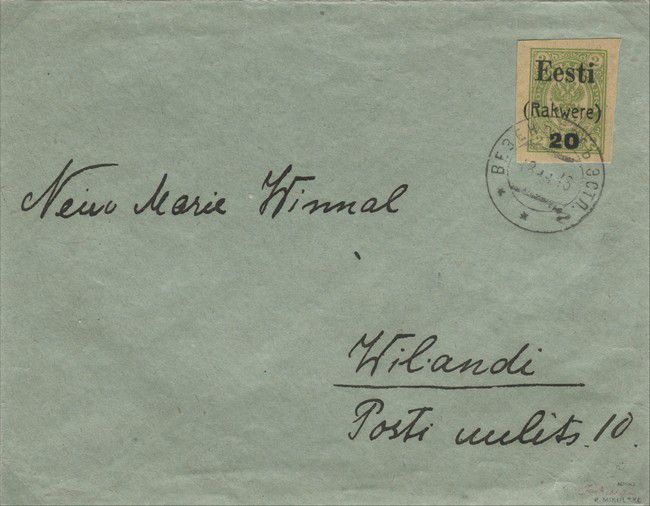 Eesti
(Rakwere)
20
2
ВЕЗЕНБЕРГЪ ЭСТЛ.
2
Neiu Marie Winnal
Wilandi
Posti uulits. 10.